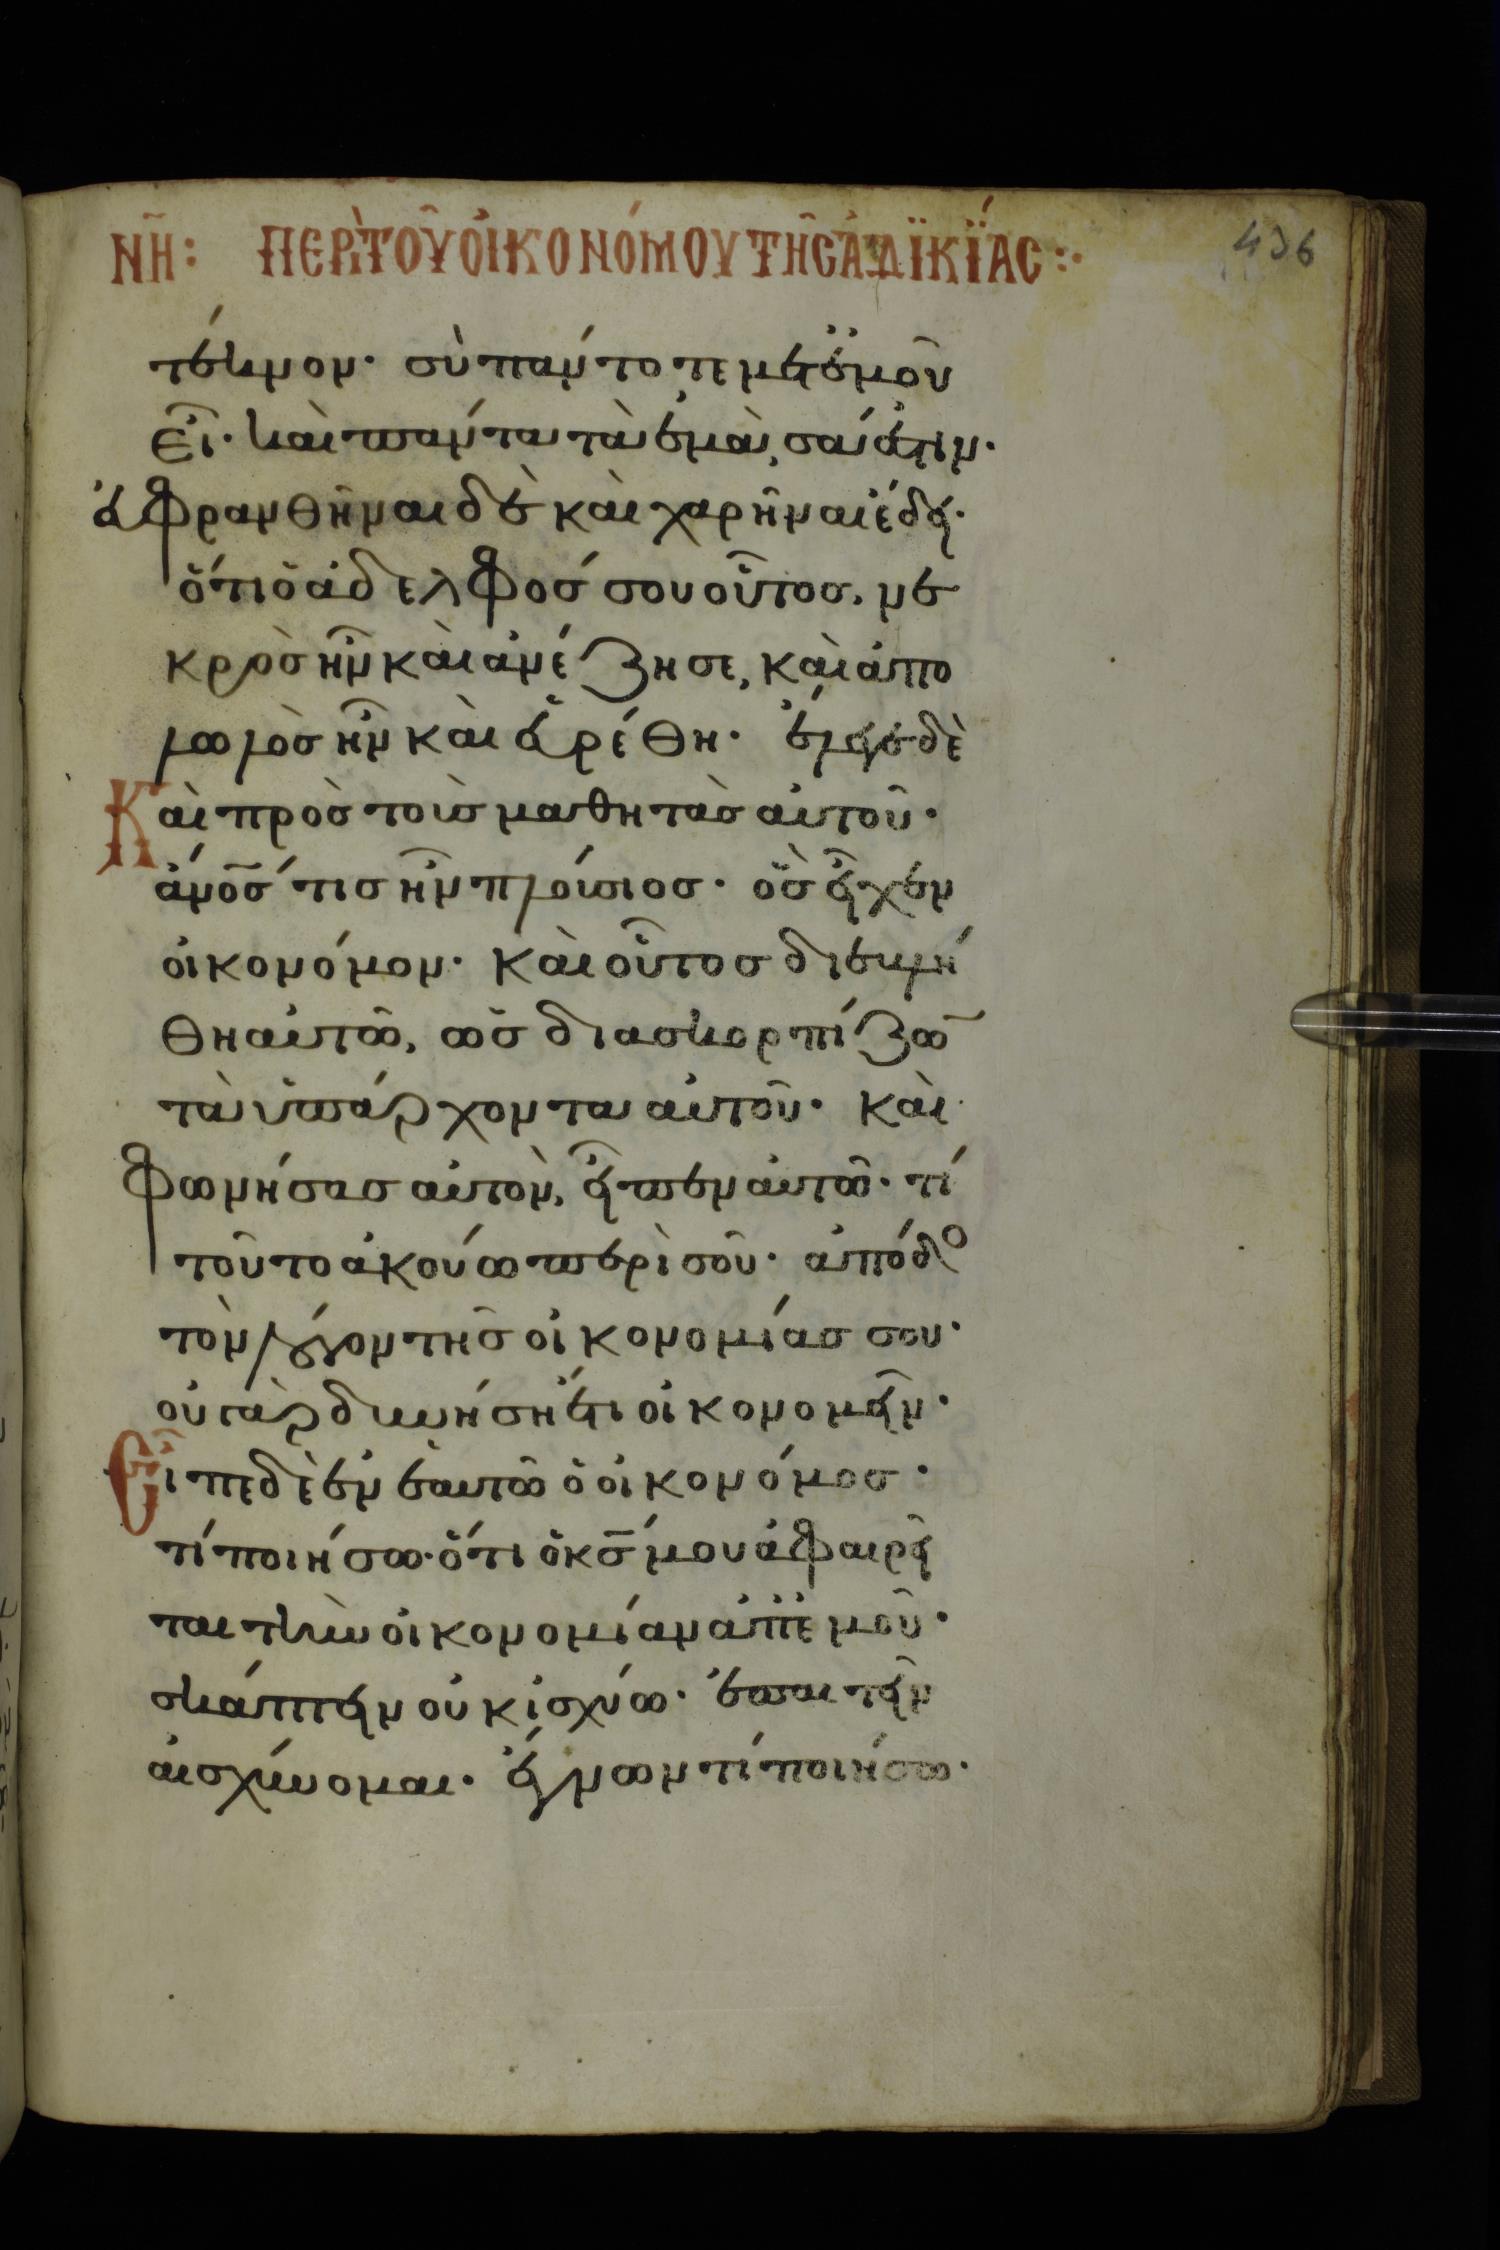 ΝΗ: ΠΕΡῚ ΤΟΥ͂ ΟἸΚΟΝΌΜΟΥ ΤΗ͂Σ ἈΔΪΚΪ́ΑΣ:·
436
τέκνον· σὺ πάντοτε μετ' ἐμοῦ
εἶ· καὶ πάντα τὰ ἐμὰ, σά ἐστιν·
εὐφρανθῆναι δὲ καὶ χαρῆναι ἔδει·
ὅτι ὁ ἀδελφός σου οὗτος, νε
κρὸς ἦν καὶ ἀνέζησε, καὶ ἀπο
λωλὸς ἦν καὶ εὑρέθη· ἔλεγε δὲ
Καὶ πρὸς τοὺς μαθητὰς αὐτοῦ·
ἀνος τίς ἦν πλούσιος· ὃς εἶχεν
οἰκονόμον· καὶ οὗτος διεβλή
θη αὐτῶ, ὡς διασκορπίζων
τὰ ὑπάρχοντα αὐτοῦ· καὶ
φωνήσας αὐτὸν, εἶπεν αὐτῶ· τί
τοῦτο ἀκούω περὶ σοῦ· ἀπόδο
τὸν λόγον τῆς οἰκονομίας σου·
οὐ γὰρ δυνήση ἔτι οἰκονομεῖν·
Εἶπε δὲ ἐν ἑαυτῶ ὁ οἰκονόμος·
τί ποιήσω· ὅτι ὁ κς μου ἀφαιρεῖ
ται τὴν οἰκονομίαν ἀπ' ἐμοῦ·
σκάπτειν οὐκ ἰσχύω· ἐπαιτεῖν
αἰσχύνομαι· ἔγνων τί ποιήσω·